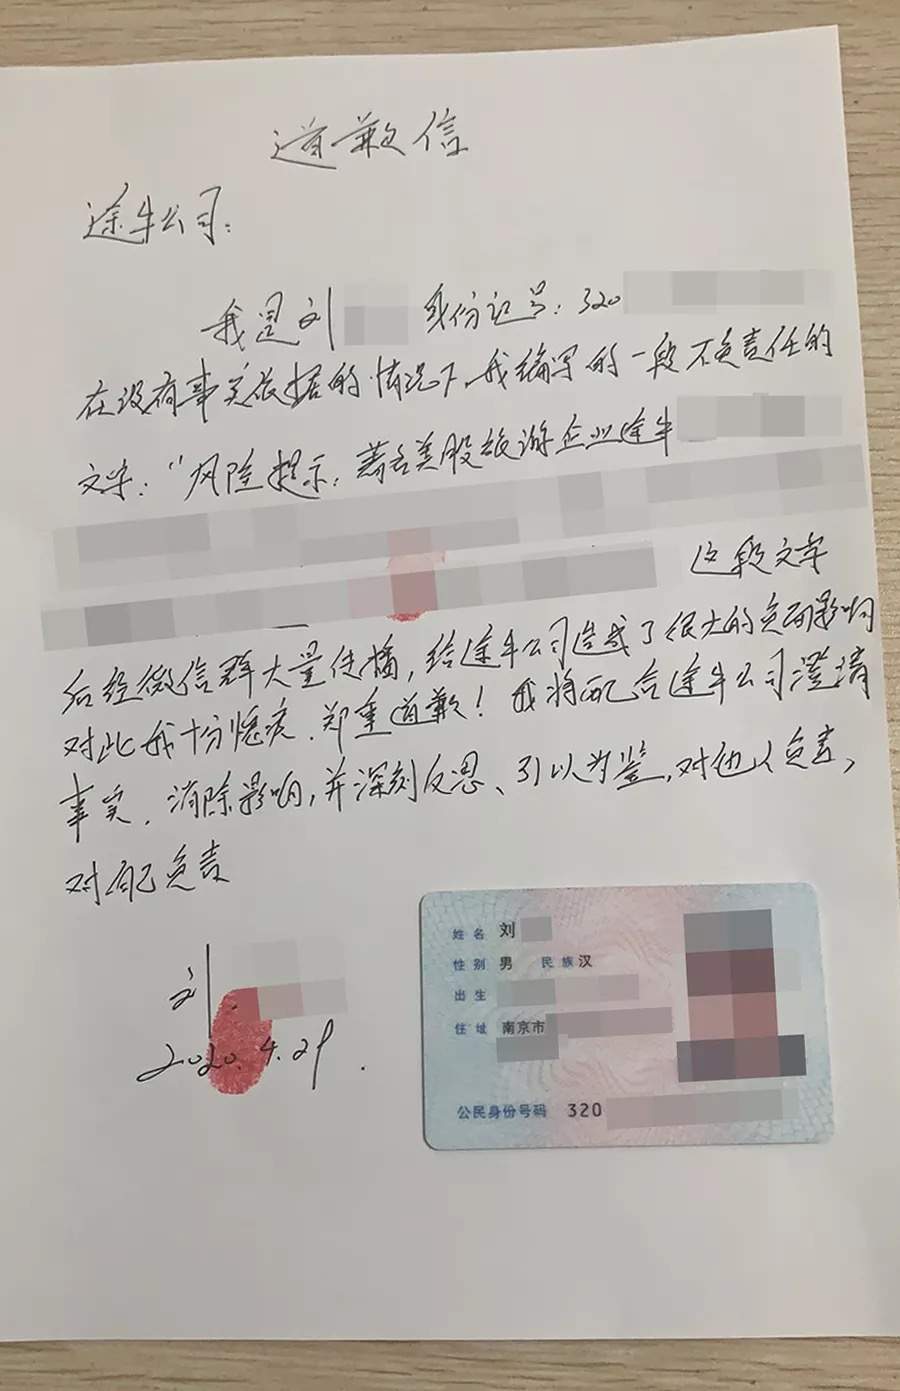 道歉信
途牛公司:
我是刘 身份证号: 320
在没有事实依据的情况下,我编写的一段不负责任的
文字:"风险提示:著名美股旅游企业途牛
这段文字
后经微信群大量传播,给途牛公司造成了很大的负面影响
对此我十分愧疚.郑重道歉!我将配合途牛公司澄清
事实.消除影响,并深刻反思、引以为鉴,对他人负责,
对自己负责
刘
2020.4.29.
姓名 刘
性别 男 民族 汉
出生
住址 南京市
公民身份号码 320